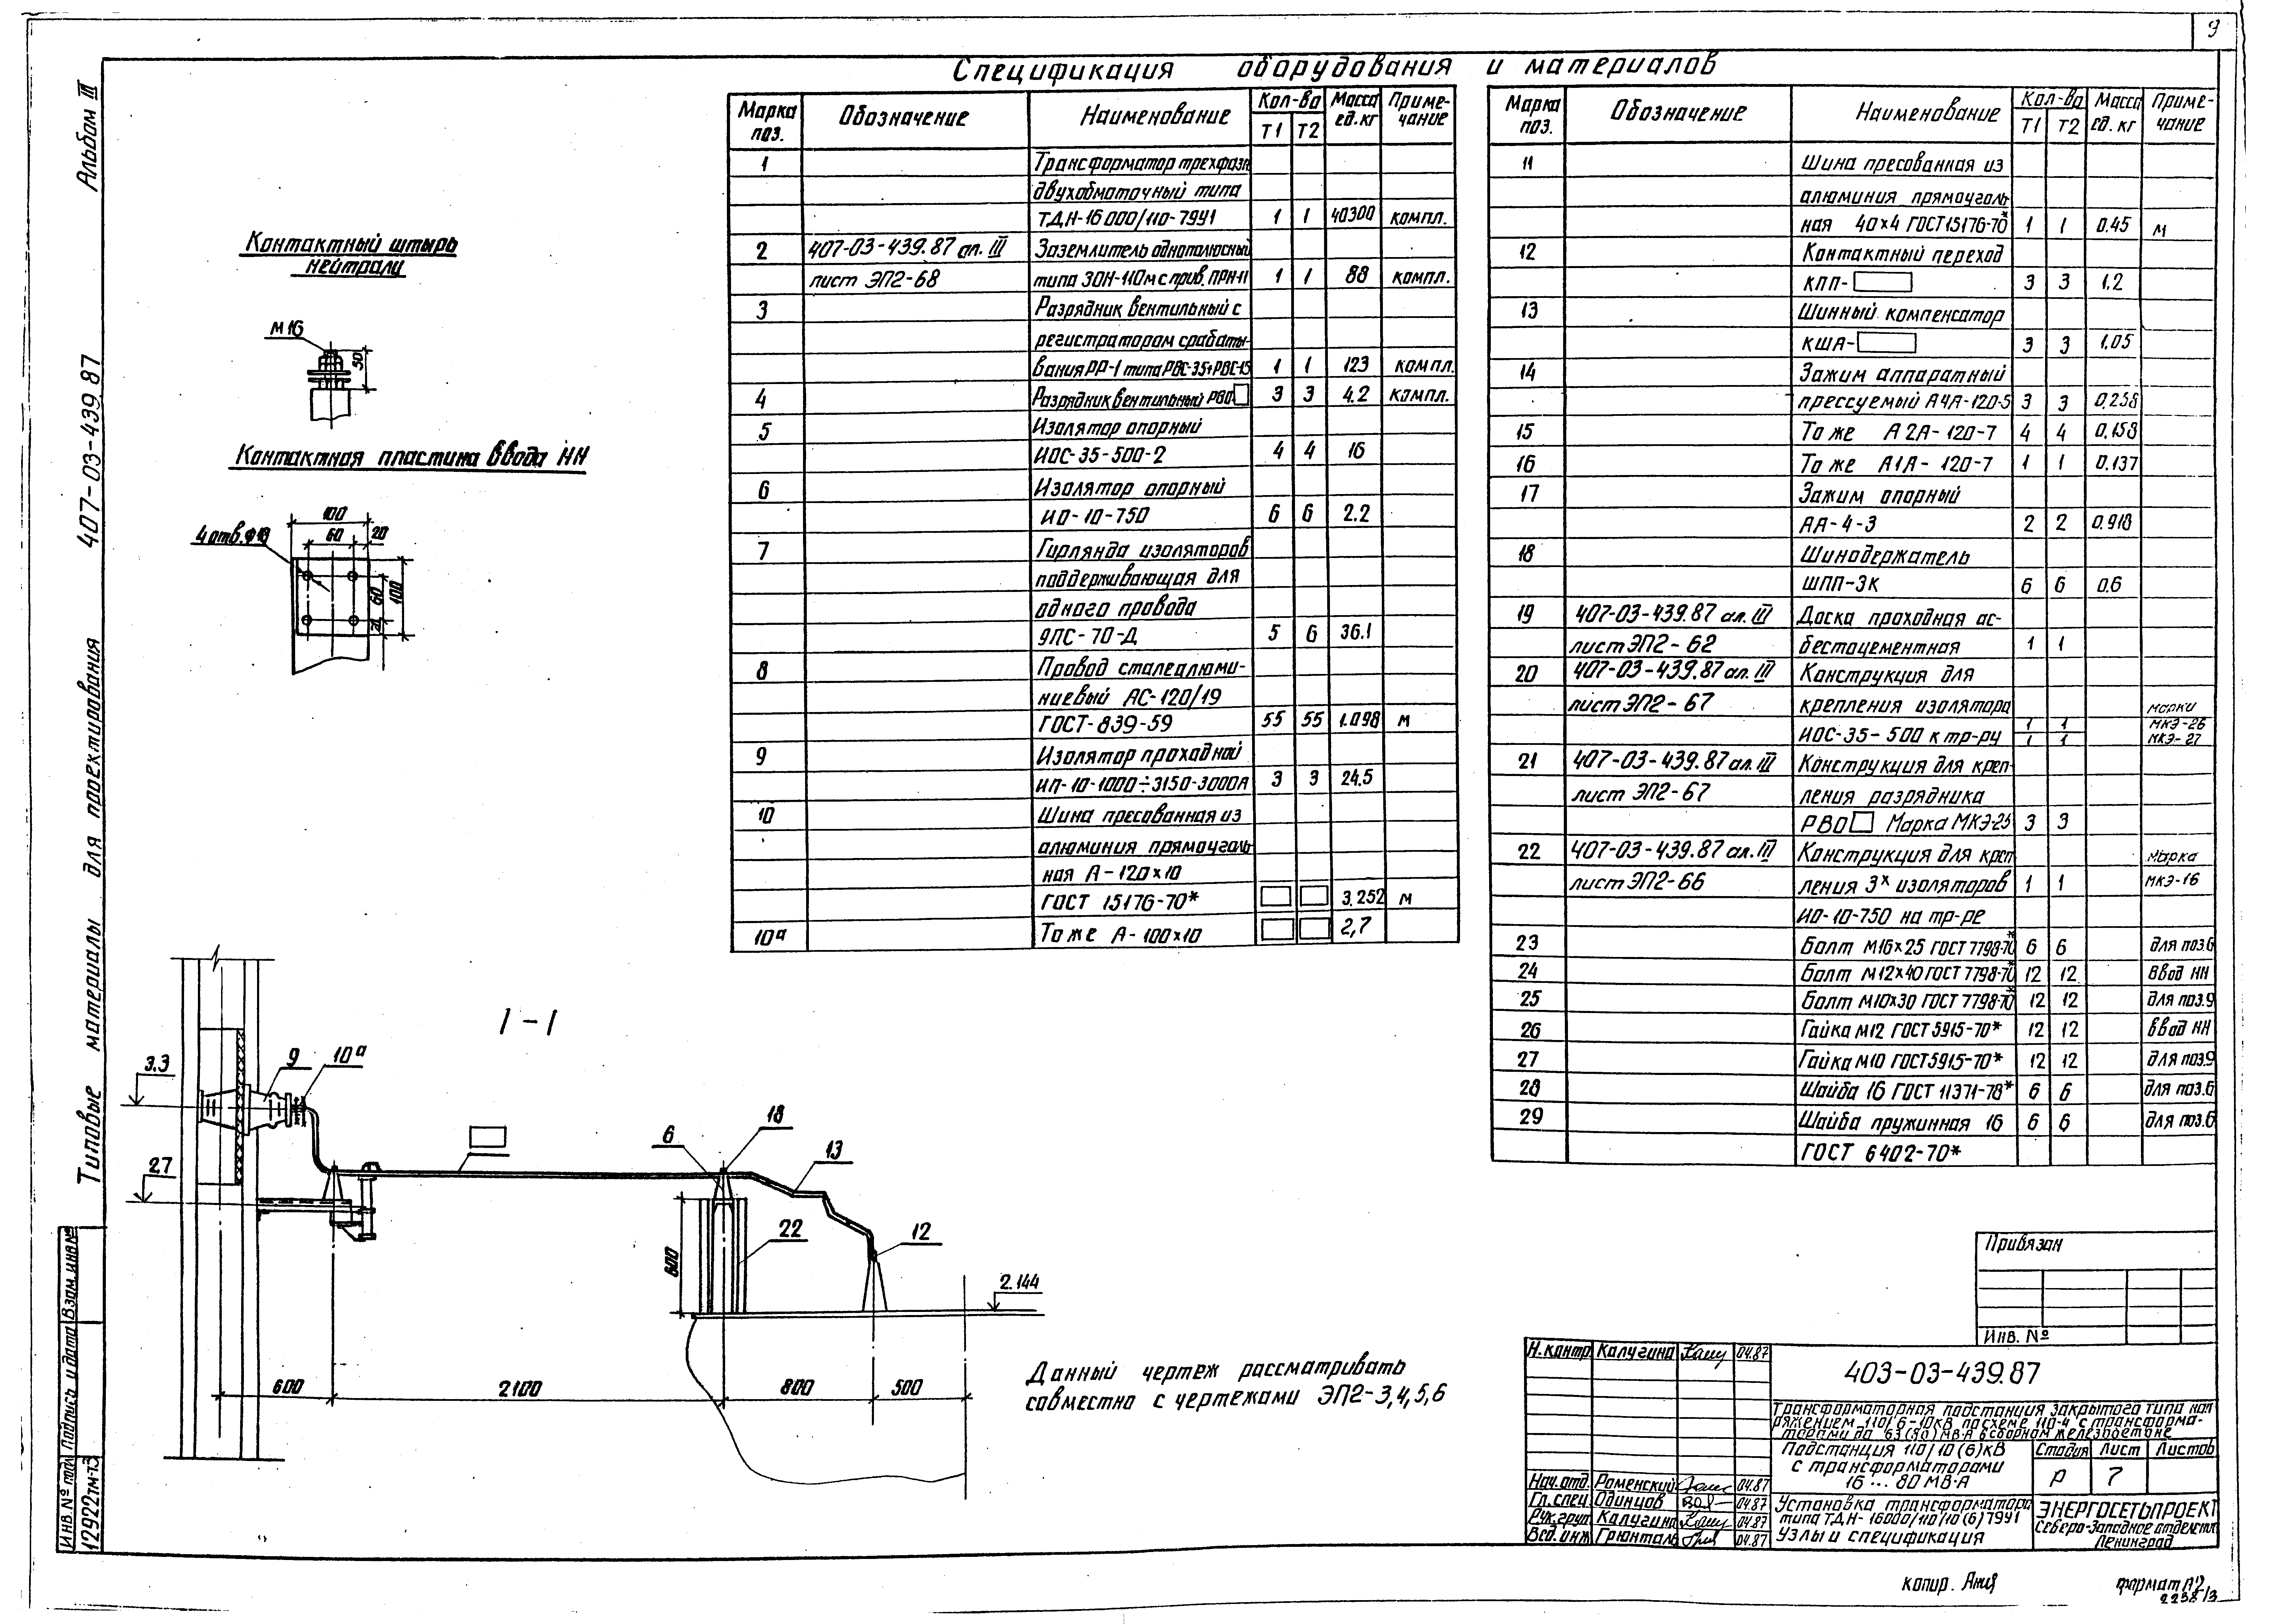 9
Альбом III
407-03-439.87
Типовые материалы для проектирования
Спецификация оборудования и материалов
Марка поз. Обозначение Наименование Кол-во Т1 Т2 Масса ед. кг Приме-чание
1 Трансформатор трехфазн
двухобмоточный типа
ТДН-16000/110-79У1 1 1 40300 компл.
2 407-03-439.87 ал. III Заземлитель однополюсный
лист ЭП2-68 типа ЗОН-110м с прив. ПРН-11 1 1 88 компл.
3 Разрядник вентильный с
регистратором срабаты-
вания РР-1 типа РВС-35+РВС-15 1 1 123 компл.
4 Разрядник вентильный РВО 3 3 4.2 компл.
5 Изолятор опорный
ИОС-35-500-2 4 4 16
6 Изолятор опорный
ИО-10-750 6 6 2.2
7 Гирлянда изоляторов
поддерживающая для
одного провода
9ПС-70-Д 5 6 36.1
8 Провод сталеалюми-
ниевый АС-120/19
ГОСТ-839-59 55 55 1.098 м
9 Изолятор проходной
ИП-10-1000÷3150-3000А 3 3 24.5
10 Шина пресованная из
алюминия прямоуголь
ная А-120х10
ГОСТ 15176-70* 3.252 м
10а То же А-100х10 2,7
Марка поз. Обозначение Наименование Кол-во Т1 Т2 Масса ед. кг Приме-чание
11 Шина пресованная из
алюминия прямоуголь
ная 40х4 ГОСТ 15176-70* 1 1 0.45 м
12 Контактный переход
КПП- 3 3 1.2
13 Шинный компенсатор
КША- 3 3 1,05
14 Зажим аппаратный
прессуемый А4А-120-5 3 3 0,258
15 То же А2А-120-7 4 4 0.158
16 То же А1А-120-7 1 1 0.137
17 Зажим опорный
АА-4-3 2 2 0.918
18 Шинодержатель
ШПП-3К 6 6 0.6
19 407-03-439.87 ал. III Доска проходная ас-
лист ЭП2-62 бестоцементная 1 1
20 407-03-439.87 ал. III Конструкция для
лист ЭП2-67 крепления изолятора марки
ИОС-35-500 к тр-ру 1 1 МКЭ-26
1 1 МКЭ-27
21 407-03-439.87 ал. III Конструкция для креп-
лист ЭП2-67 ления разрядника
РВО Марка МКЭ-25 3 3
22 407-03-439.87 ал. III Конструкция для креп марка
лист ЭП2-66 ления 3х изоляторов 1 1 МКЭ-16
ИО-10-750 на тр-ре
23 Болт М16х25 ГОСТ 7798-70* 6 6 для поз.6
24 Болт М12х40 ГОСТ 7798-70* 12 12 Ввод НН
25 Болт М10х30 ГОСТ 7798-70* 12 12 для поз.9
26 Гайка М12 ГОСТ 5915-70* 12 12 ввод НН
27 Гайка М10 ГОСТ 5915-70* 12 12 для поз.9
28 Шайба 16 ГОСТ 11371-78* 6 6 для поз.6
29 Шайба пружинная 16 6 6 для поз.6
ГОСТ 6402-70*
Контактный штырь
нейтрали
М16
50
Контактная пластина ввода НН
100
60 20
4 отв. Ф18
60
100
20
1-1
3.3
9
10а
2.7
6
18
13
22
12
600
2.144
600
2100
800
500
Данный чертеж рассматривать
совместно с чертежами ЭП2-3,4,5,6
Привязан
Инв. №
403-03-439.87
Трансформаторная подстанция закрытого типа нап
ряжением 110/6-10кВ по схеме 110-4 с трансформа-
торами до 63(80) МВ·А в сборном железобетоне
Подстанция 110/10(6)кВ
с трансформаторами
16...80 МВ·А
Стадия Лист Листов
Р 7
Установка трансформатора
типа ТДН-16000/110/10(6)79У1
Узлы и спецификация
ЭНЕРГОСЕТЬПРОЕКТ
Северо-Западное отделен.
Ленинград
Н.контр Калугина 04.87
Нач.отд. Роменский 04.87
Гл.спец. Одинцов 04.87
Рук.груп Калугина 04.87
Вед.инж Грюнталь 04.87
Взам.инв№
Подпись и дата
Инв.№ подл
12922тм-т3
копир. Аня
формат А2
2238/3